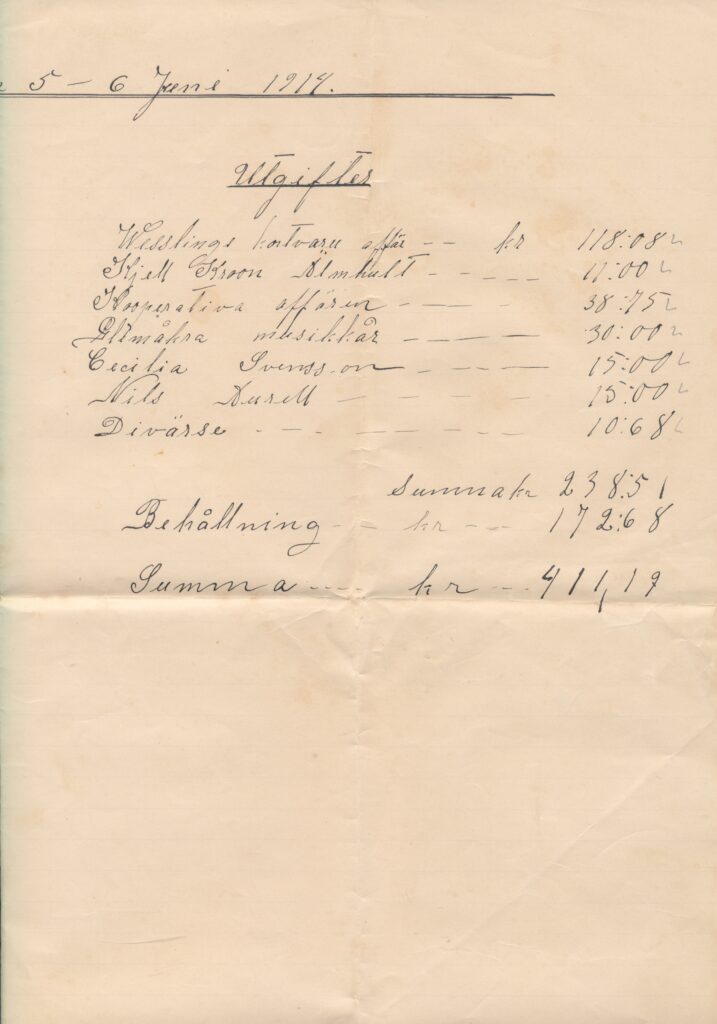 5 – 6 Juni 1914.
Utgifter
Wesslings kortvaru affär -- kr 118:08
Kjell Kroon Älmhult ----- 11:00
Kooperativa affären ---- 38:75
Glimåkra musikkår ---- 30:00
Cecilia Svensson ----- 15:00
Nils Aurell ---- 15:00
Divärse ------- 10:68
Summa kr 238:51
Behållning -- kr -- 172:68
Summa --- kr -- 411,19